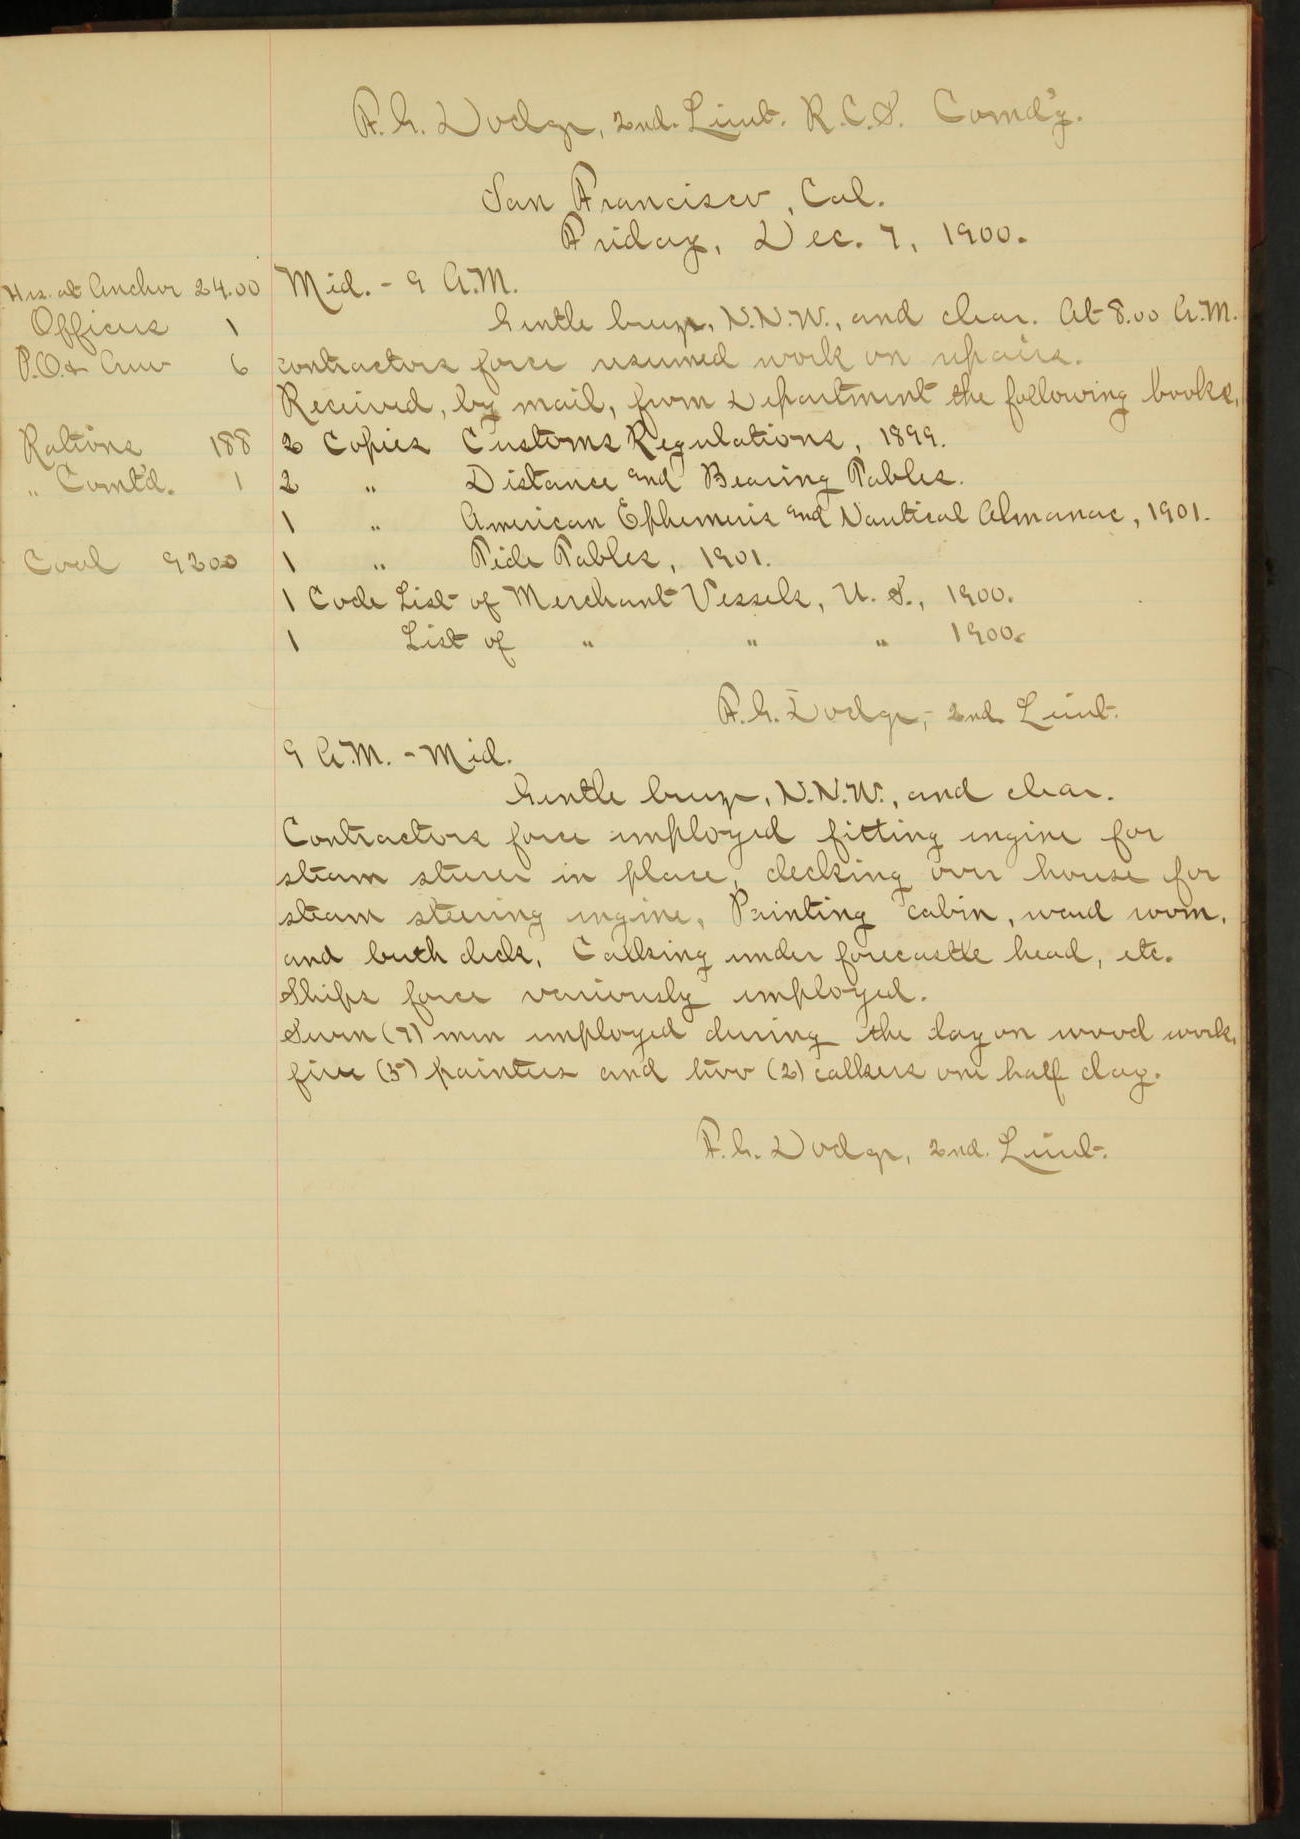 F.G. Dodge, 2nd. Lieut. R.C.S. Comd'g.
San Francisco, Cal.
Friday, Dec. 7, 1900.
Hrs. at Anchor 24.00
Officers 1
P.O. & Crew 6
Rations 188
„ Comt'd. 1
Coal 9200
Mid. - 9 A.M.
Gentle breeze, N.N.W., and clear. At 8.00 A.M.
contractors force resumed work on repairs.
Received, by mail, from Department the following books,
2 Copies Customs Regulations, 1899.
2 „ Distance and Bearing Tables.
1 „ American Ephemeris and Nautical Almanac, 1901.
1 „ Tide Tables, 1901.
1 Code List of Merchant Vessels, U. S., 1900.
1 List of „ „ „ 1900.
F.G. Dodge, 2nd Lieut.
9 A.M. - Mid.
Gentle breeze, N.N.W., and clear.
Contractors force employed fitting engine for
steam steerer in place, decking over house for
steam steering engine, Painting cabin, ward room,
and berth deck, Calking under forecastle head, etc.
Ships force variously employed.
Seven (7) men employed during the day on wood work,
five (5) painters and two (2) calkers one half day.
F.G. Dodge, 2nd. Lieut.